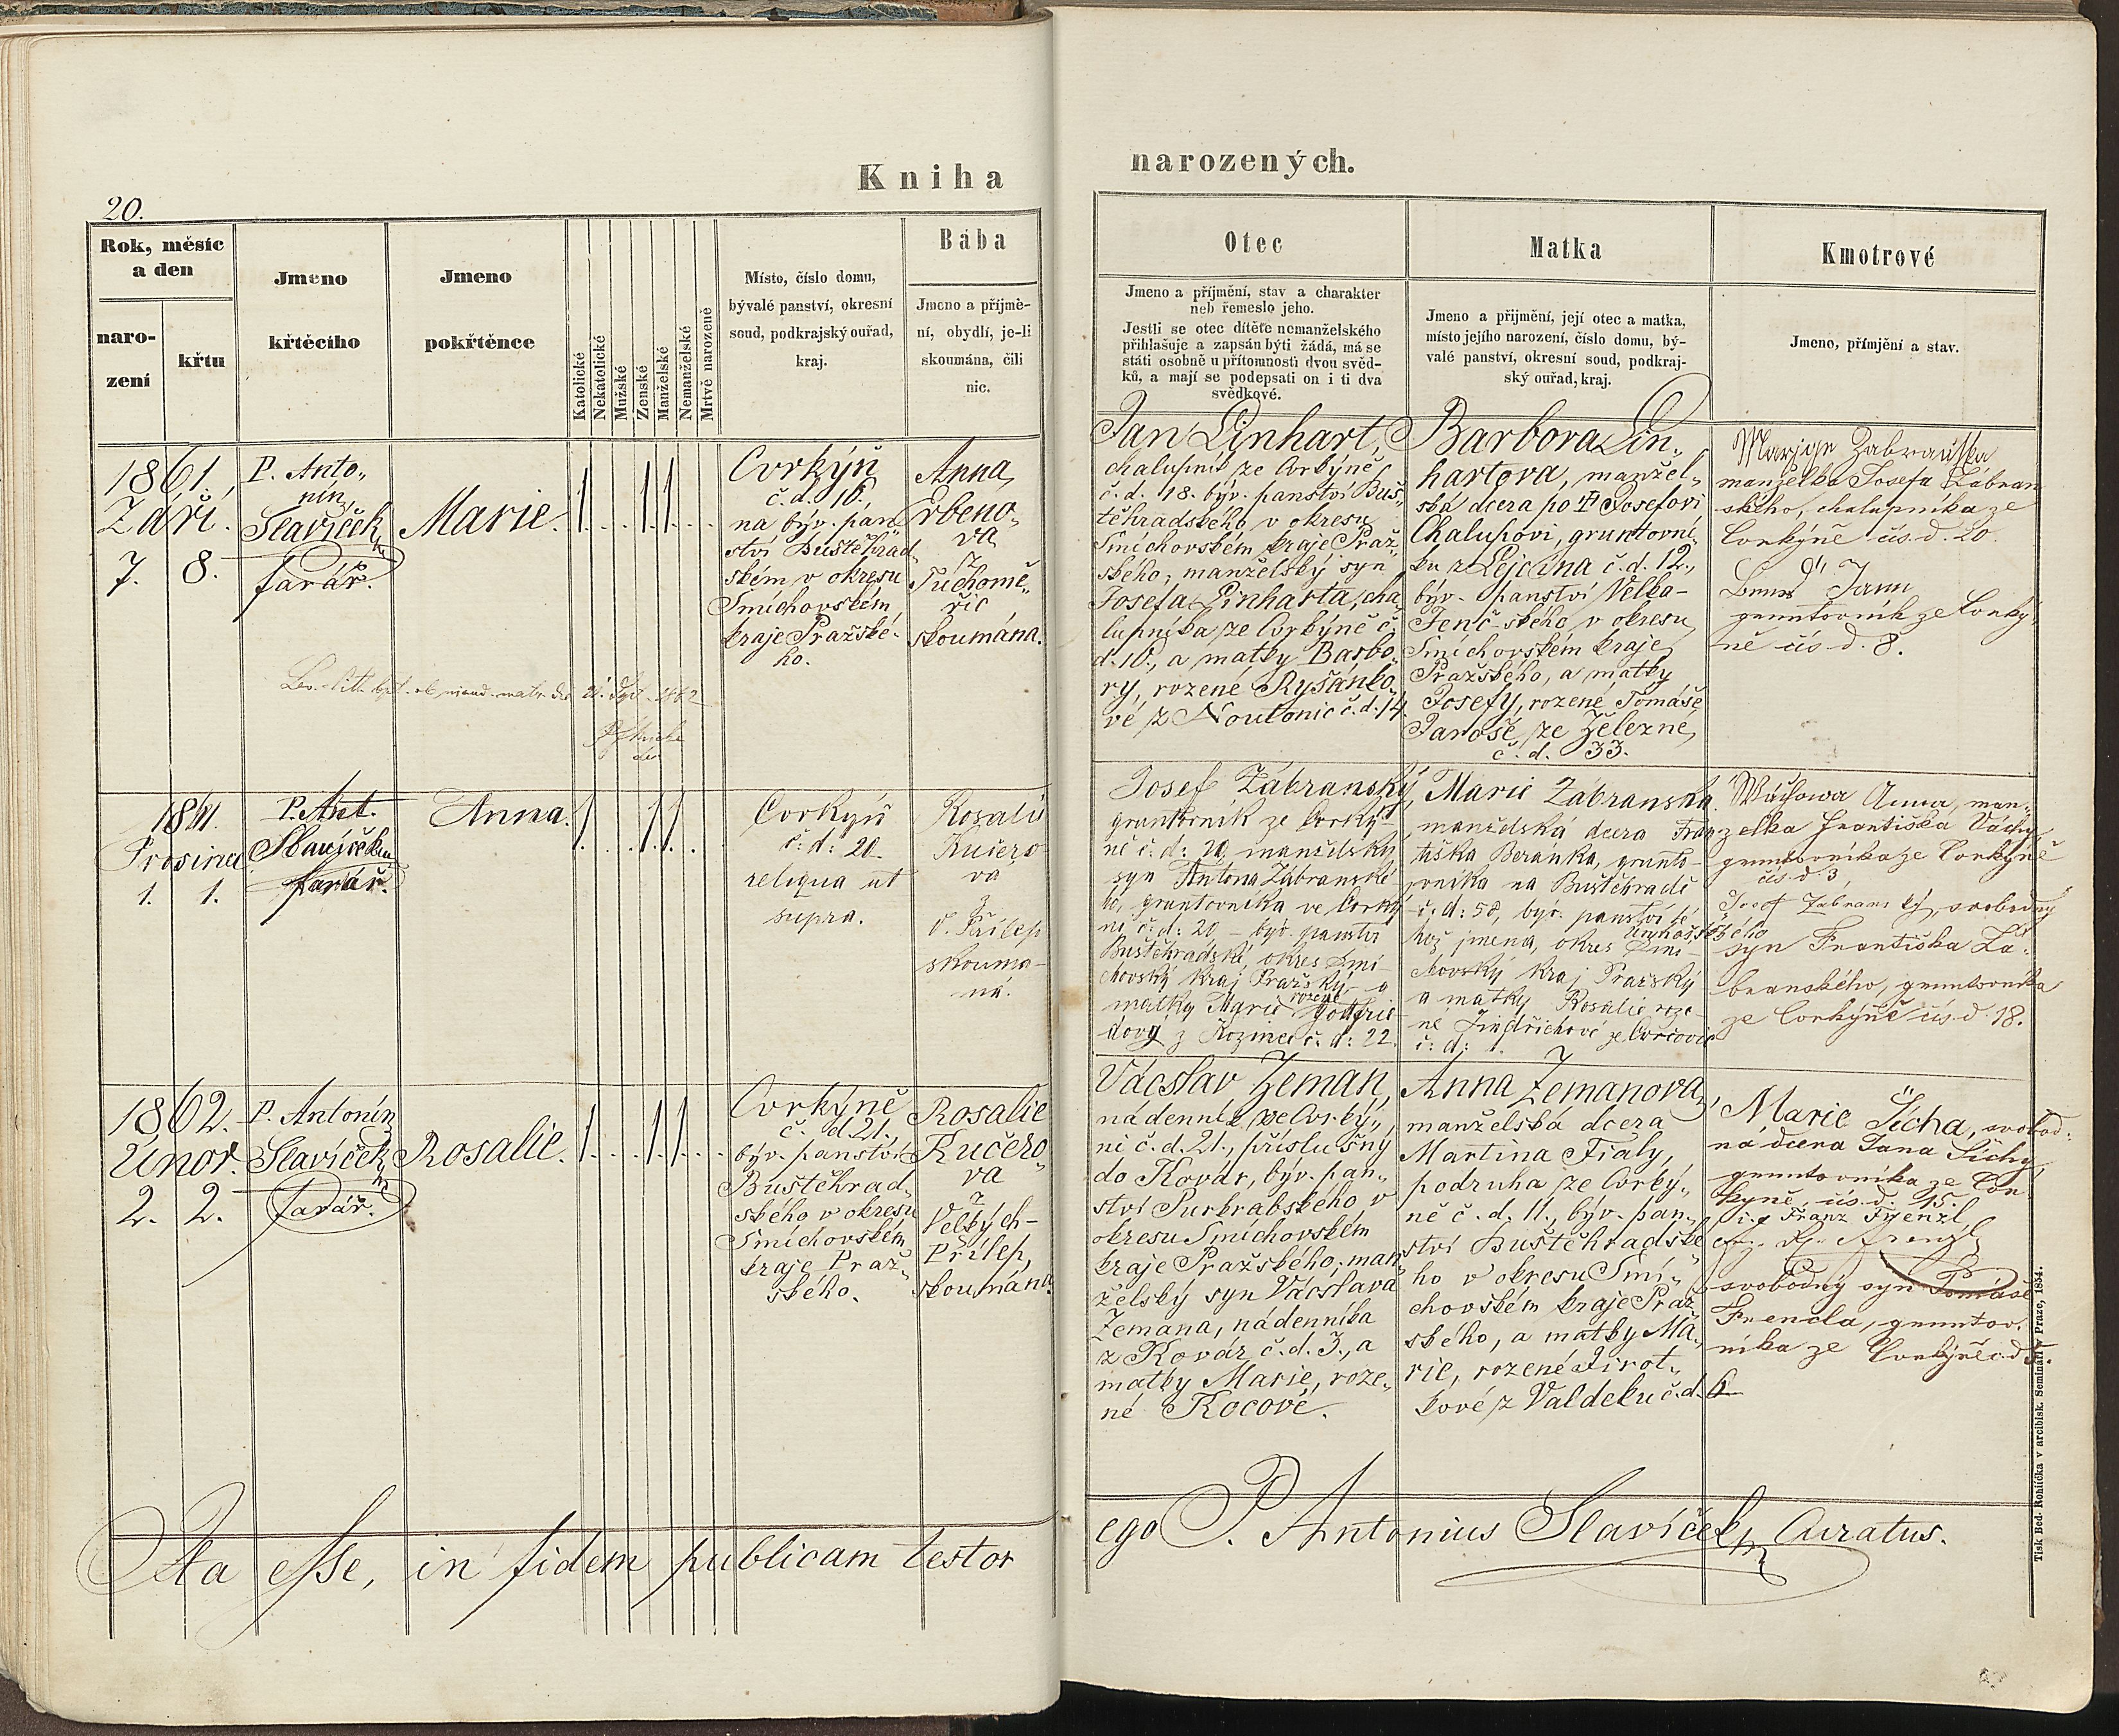 Kniha
narozených.
20.
Rok, měsíc
a den
naro-
zení
křtu
Jmeno
křtěcího
Jmeno
pokřtěnce
Katolické
Nekatolické
Mužské
Ženské
Manželské
Nemanželské
Mrtvě narozené
Místo, číslo domu,
bývalé panství, okresní
soud, podkrajský ouřad,
kraj.
Bába
Jmeno a příjmě-
ní, obydlí, je-li
skoumána, čili
nic.
Otec
Jmeno a příjmění, stav a charakter
neb řemeslo jeho.
Jestli se otec dítěte nemanželského
přihlašuje a zapsán býti žádá, má se
státi osobně u přítomnosti dvou svěd-
ků, a mají se podepsati on i ti dva
svědkové.
Matka
Jmeno a přijmění, její otec a matka,
místo jejího narození, číslo domu, bý-
valé panství, okresní soud, podkraj-
ský ouřad, kraj.
Kmotrové
Jmeno, přímjění a stav.
1861.
Září.
7. 8.
P. Anto„
nín
Slavíček
farář.
Marie.
1 1 1
Cvrkýň
č. d. 16.,
na býv. pan„
ství Buštěhrad„
ském v okresu
Smíchovském,
kraje Pražské-
ho.
Anna
Erbeno„
va
z
Tuchomě„
řic
skoumána.
Jan Linhart,
chalupník ze Cvrkýně
č. d. 18. býv. panství Buš„
těhradského v okresu
Smíchovském kraje Praž„
ského, manželský syn
Josefa Linharta, cha„
lupníka ze Cvrkýně č.
d. 16., a matky Barbo„
ry, rozené Ryšánko„
vé z Noutonic č. d. 14.
Barbora Lin„
hartova, manžel„
ská dcera po † Josefovi
Chalupovi, gruntovní„
ku z Lejčína č. d. 12.,
býv. panství Velko-
Jenč-ského v okresu
Smíchovském kraje
Pražského, a matky
Josefy, rozené Tomáše
Jaroše ze Železné,
č. d. 33.
Marije Zabranska
manželka Josefa Zábran
ského, chalupníka ze
Cvrkýně čís. d. 20.
Jann
gruntovník ze Cvrký„
ně čís. d. 8.
1861.
Prosinec
1. 1.
P. Ant.
Slavíček
farář.
Anna.
1 1 1
Cvrkyň
č: d: 20
reliqua ut
supra.
Rosalie
Kučero
va
z
V. Přílep
skouma-
ná.
Josef Zábranský,
gruntovník ze Cvrký-
ně č: d: 20, manželský
syn Antona Zábranské-
ho, gruntovníka ve Cvrký-
ni č: d: 20 – býv. panství
Buštěhradské, okres Smí-
chovský kraj Pražský, a
rozené
matky Marie Gottfrie-
dovy z Kozinec č: d: 22.
Marie Zábranská
manželská dcera Fran
tiška Beránka, grunto-
vníka na Buštěhradě
č: d: 58, býv. panství té-
hož jmena, okres Smí-
chovský kraj Pražský
a matky Rosalie roze-
né Jindřichové ze Cvrčovic
č: d: 1.
Wáchowa Anna, man„
želka Františka Váchy,
gruntovníka ze Cvrkyně
čís. d 3,
Josef Zabranský, svobodný
syn Františka Zá„
branského, gruntovníka
ze Cvrkýně čís. d. 18.
1862.
Únor.
2. 2.
P. Antonín
Slavíček
farář.
Rosalie.
1 1 1
Cvrkýně
č. d. 21.,
býv. panství
Buštěhrad„
ského v okresu
Smíchovském
kraje Praž„
ského.
Rosalie
Kučero„
va
z
Velkých-
Přílep,
skoumána.
Vácslav Zeman,
nádenník ze Cvrký„
ně č. d. 21., příslušný
do Kovár, býv. pan„
ství Purkrabského v
okresu Smíchovském
kraje Pražského, man„
želský syn Vácslava
Zemana, nádenníka
z Kovár č. d. 3., a
matky Marie, roze„
né Kocové.
Anna Zemanova,
manželská dcera
Martina Fialy,
podruha ze Cvrký„
ně č. d. 11., býv. pan„
ství Buštěhradské
ho v okresu Smí„
chovském kraje Praž„
ského, a matky Ma„
rie, rozené Život„
kové z Valdeku č. d. 6
Marie Šícha, svobod„
ná dcera Jana Šíchy,
gruntovníka ze Cvr„
kyně, čís. d. 15.
Franz Frenzl
svobodný syn Tomáše
Frencla, gruntov„
níka ze Cvrkýně č. d. 5.
Ita esse, in fidem publicam testor
ego P. Antonius Slavíček, Curatus.
Tisk Bed. Rohlíčka v arcibisk. Semináři v Praze, 1854.